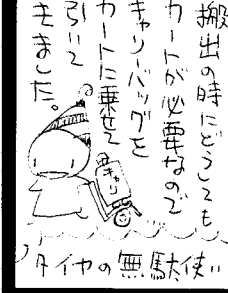 搬出の時にどうしても
カートが必要なので
キャリーバッグを
カートに乗せて
引いて
きました。
キャリ
タイヤの無駄使い